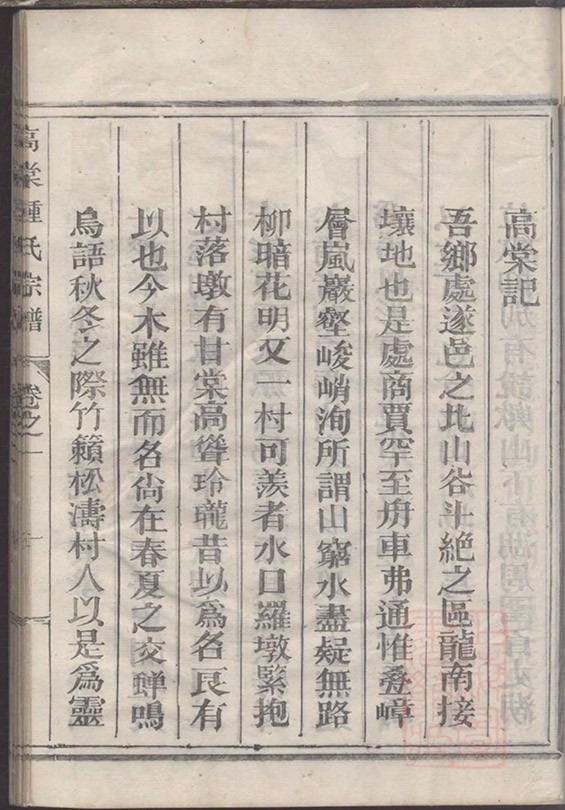 高棠記
吾鄉處遂邑之北山谷斗絕之區龍南接
壤地也是處商賈罕至舟車弗通惟叠嶂
層嵐巖壑峻峭洵所謂山窮水盡疑無路
柳暗花明又一村可羨者水口羅墩緊抱
村落墩有甘棠高聳玲瓏昔以爲名良有
以也今木雖無而名尙在春夏之交蟬鳴
鳥語秋冬之際竹籟松濤村人以是爲靈
高棠鍾氏宗譜 卷之一